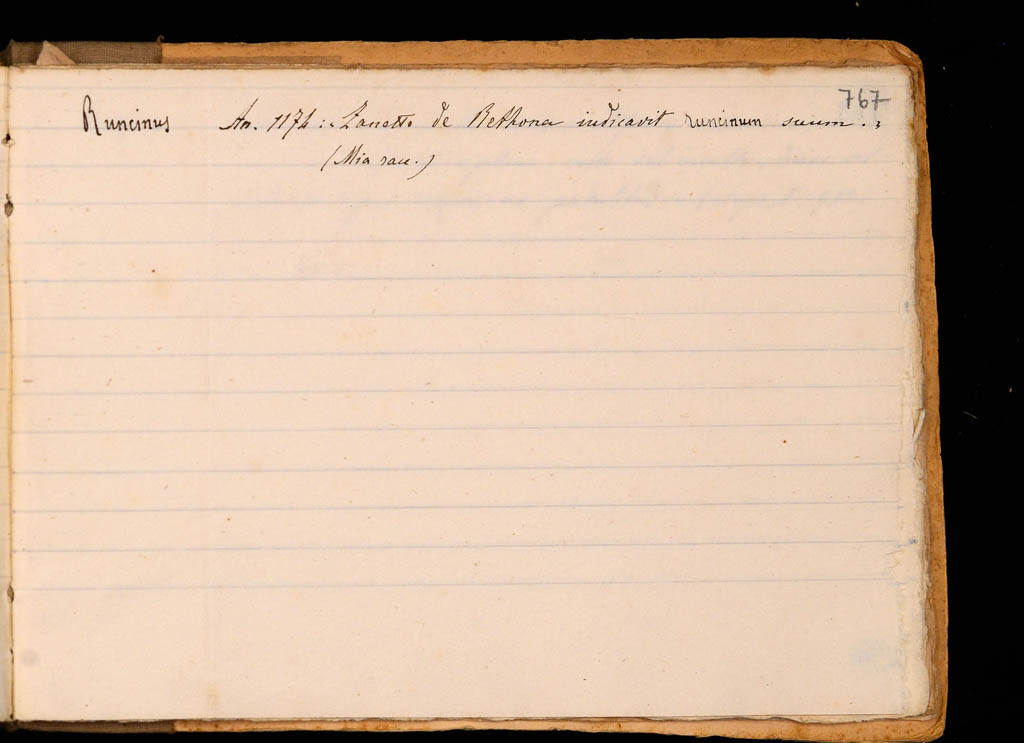 767
Runcinus An. 1174: «Zanetto de Bethona indicavit runcinum suum.»
(Mia racc.)